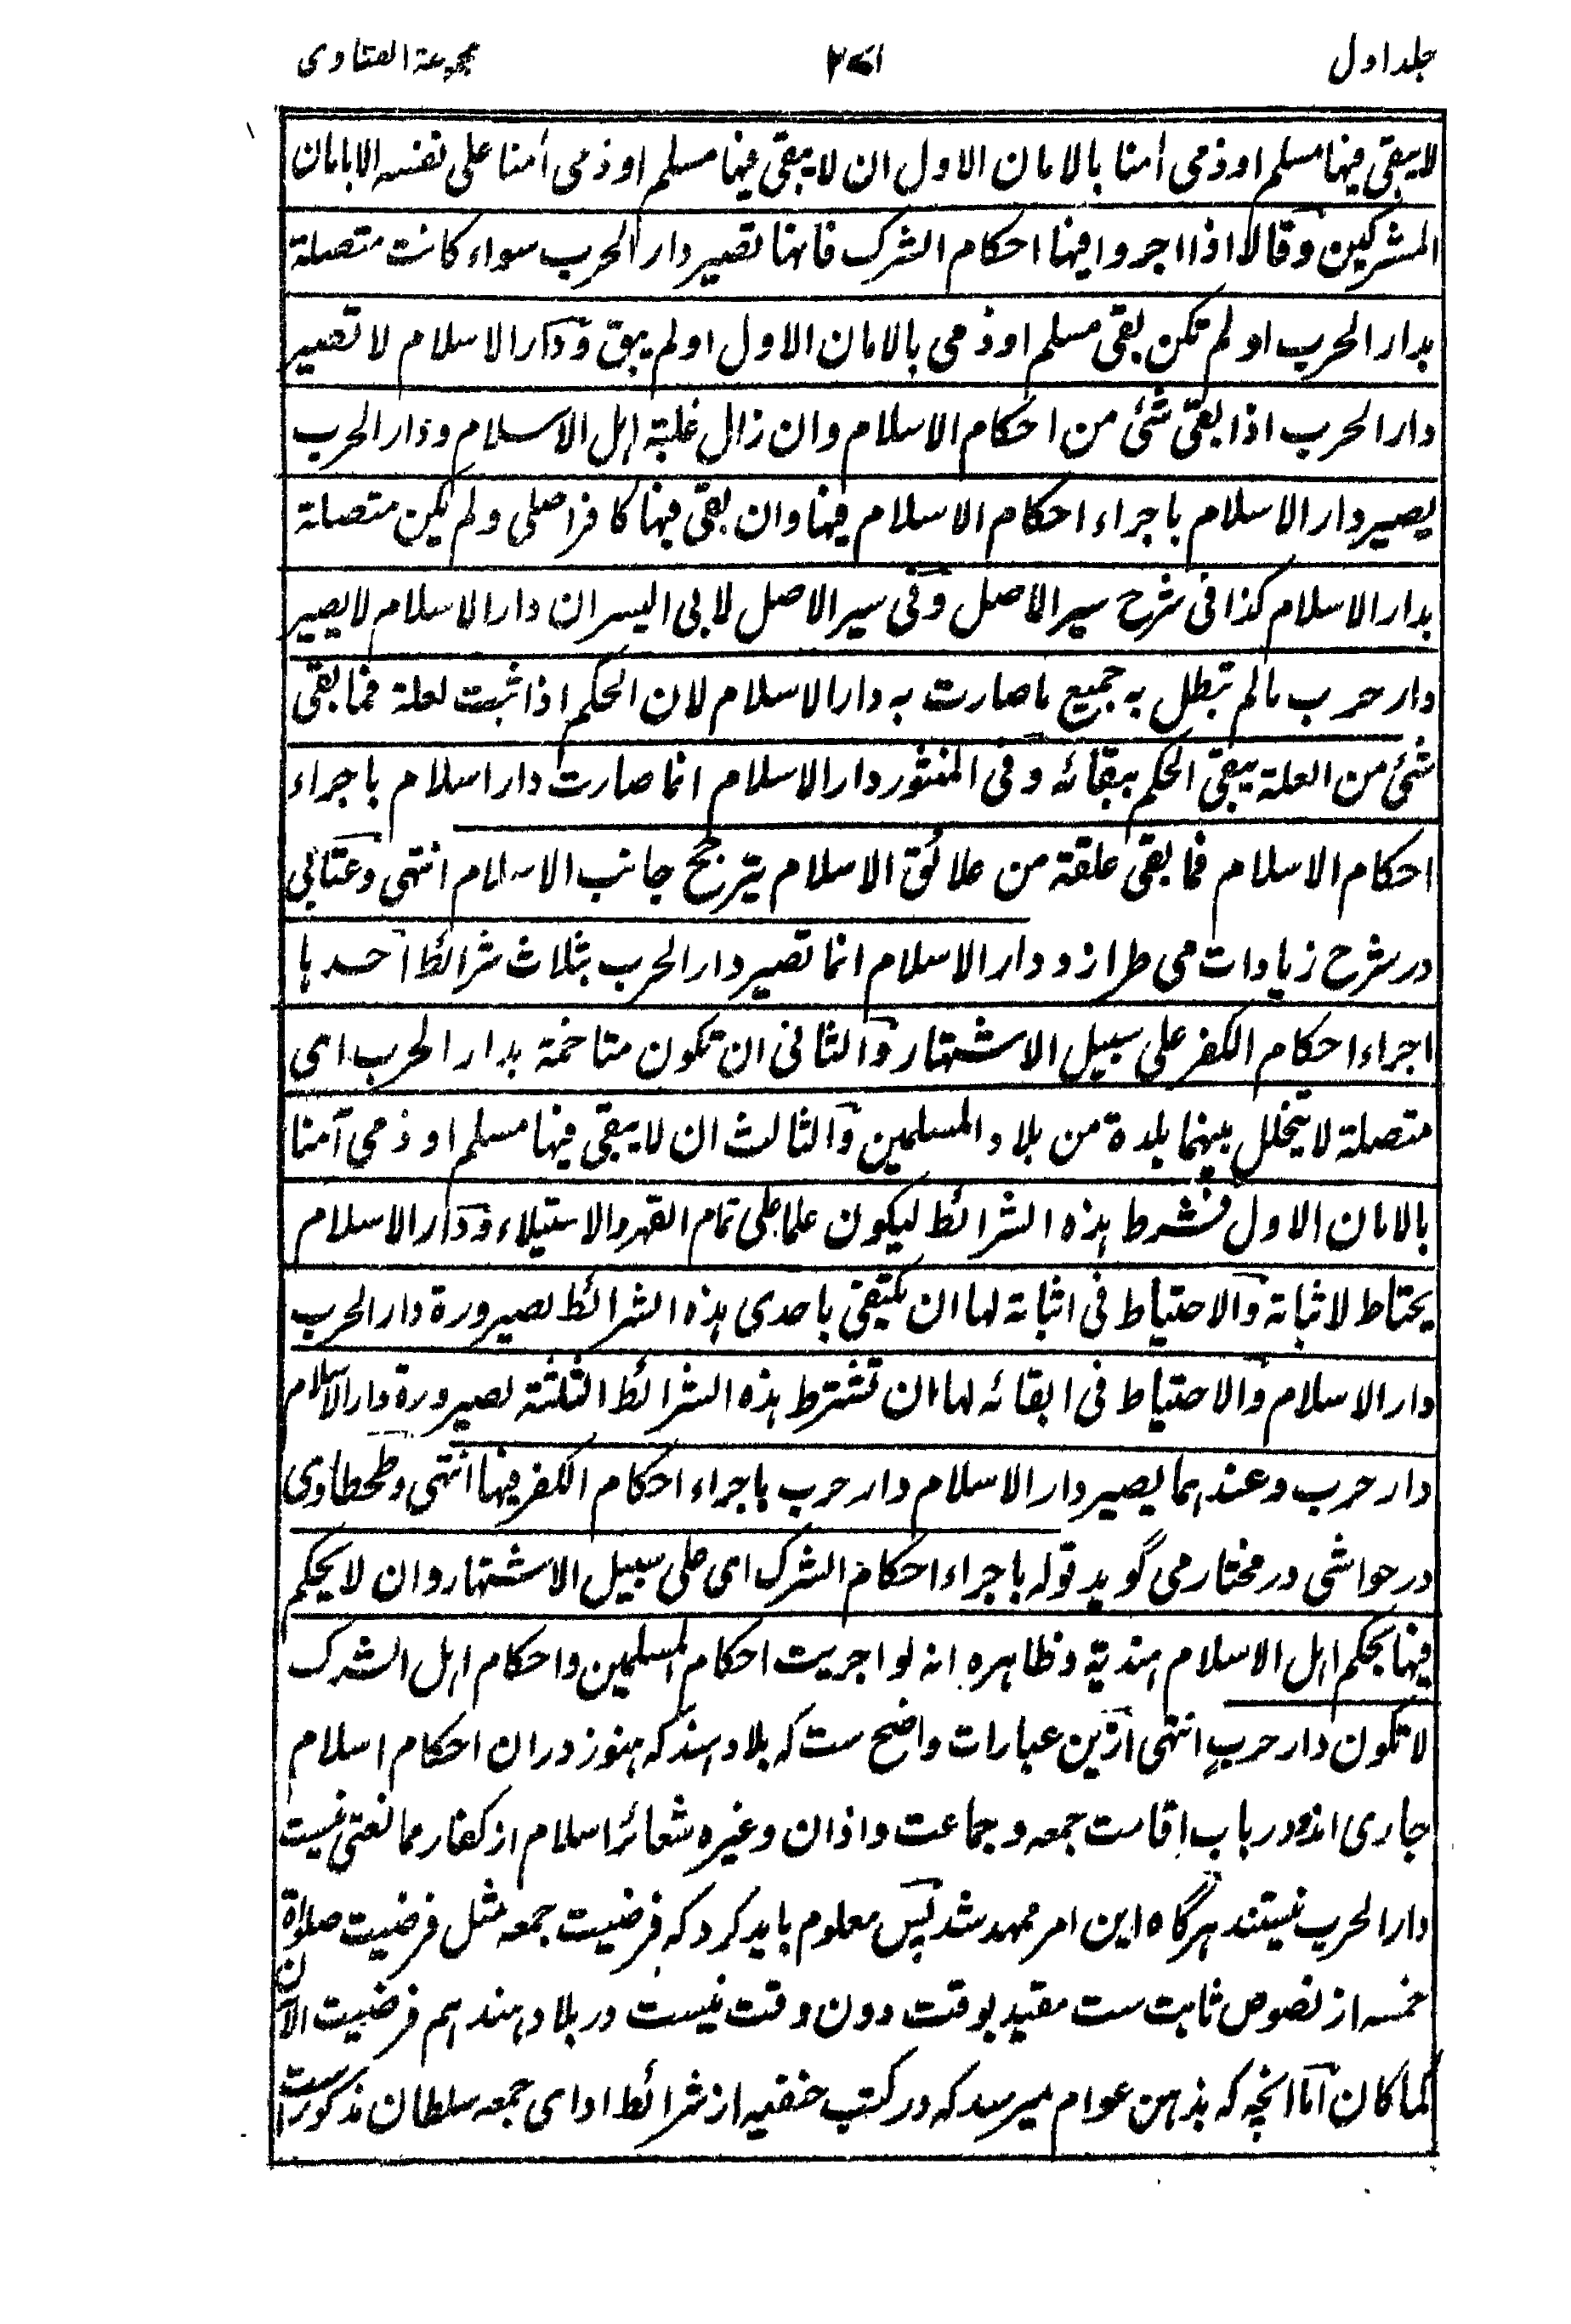 جلد اول
۲۷۱
مجموعة الفتاوى
لا يبقى فيها مسلم او ذمى أمنا بالامان الاول ان لا يبقى فيها مسلم او ذمى أمنا على نفسه الا بامان
المشركين وقالا اذا اجروا فيها احكام الشرك فانها تصير دار الحرب سواء كانت متصلة
بدار الحرب او لم تكن بقى مسلم او ذمى بالامان الاول او لم يبق ودار الاسلام لا تصير
دار الحرب اذا بقى شئ من احكام الاسلام وان زال غلبة اهل الاسلام ودار الحرب
يصير دار الاسلام باجراء احكام الاسلام فيها وان بقى فيها كافر اصلى ولم يكن متصلة
بدار الاسلام كذا فى شرح سير الاصل وفى سير الاصل لابى اليسر ان دار الاسلام لا يصير
دار حرب مالم تبطل به جميع ما صارت به دار الاسلام لان الحكم اذا ثبت لعلة فما بقى
شئ من العلة يبقى الحكم ببقائه وفى المنثور دار الاسلام انما صارت دار اسلام باجراء
احكام الاسلام فما بقى علقة من علائق الاسلام يترجح جانب الاسلام انتهى وعتابى
در شرح زيادات مى طرازد دار الاسلام انما تصير دار الحرب بثلاث شرائط احدها
اجراء احكام الكفر على سبيل الاشتهار والثانى ان تكون متاخمة بدار الحرب اى
متصلة لا يتخلل بينهما بلدة من بلاد المسلمين والثالث ان لا يبقى فيها مسلم او ذمى آمنا
بالامان الاول فشرط هذه الشرائط ليكون علما على تمام القهر والاستيلاء ودار الاسلام
يحتاط لاثباته والاحتياط فى اثباته لها ان يكتفى باحدى هذه الشرائط لصيرورة دار الحرب
دار الاسلام والاحتياط فى ابقائه لها ان تشترط هذه الشرائط الثلثة لصيرورة دار الاسلام
دار حرب وعندهما يصير دار الاسلام دار حرب باجراء احكام الكفر فيها انتهى وطحطاوى
در حواشى در مختار مى گويد قوله باجراء احكام الشرك اى على سبيل الاشتهار وان لا يحكم
فيها بحكم اهل الاسلام هندية وظاهره انه لو اجريت احكام المسلمين واحكام اهل الشرك
لا تكون دار حرب انتهى ازين عبارات واضح ست كه بلاد هند كه هنوز دران احكام اسلام
جارى اند ودر باب اقامت جمعه وجماعت واذان وغيره شعائر اسلام از كفار ممانعتى نيست
دار الحرب نيستند هرگاه اين امر ممهد شد پس معلوم بايد كرد كه فرضيت جمعه مثل فرضيت صلوٰة
خمسه از نصوص ثابت ست مقيد بوقت دون وقت نيست در بلاد هند هم فرضيت الآن
كما كان اما انچه كه بذهن عوام ميرسد كه در كتب حنفيه از شرائط اداى جمعه سلطان مذكور است